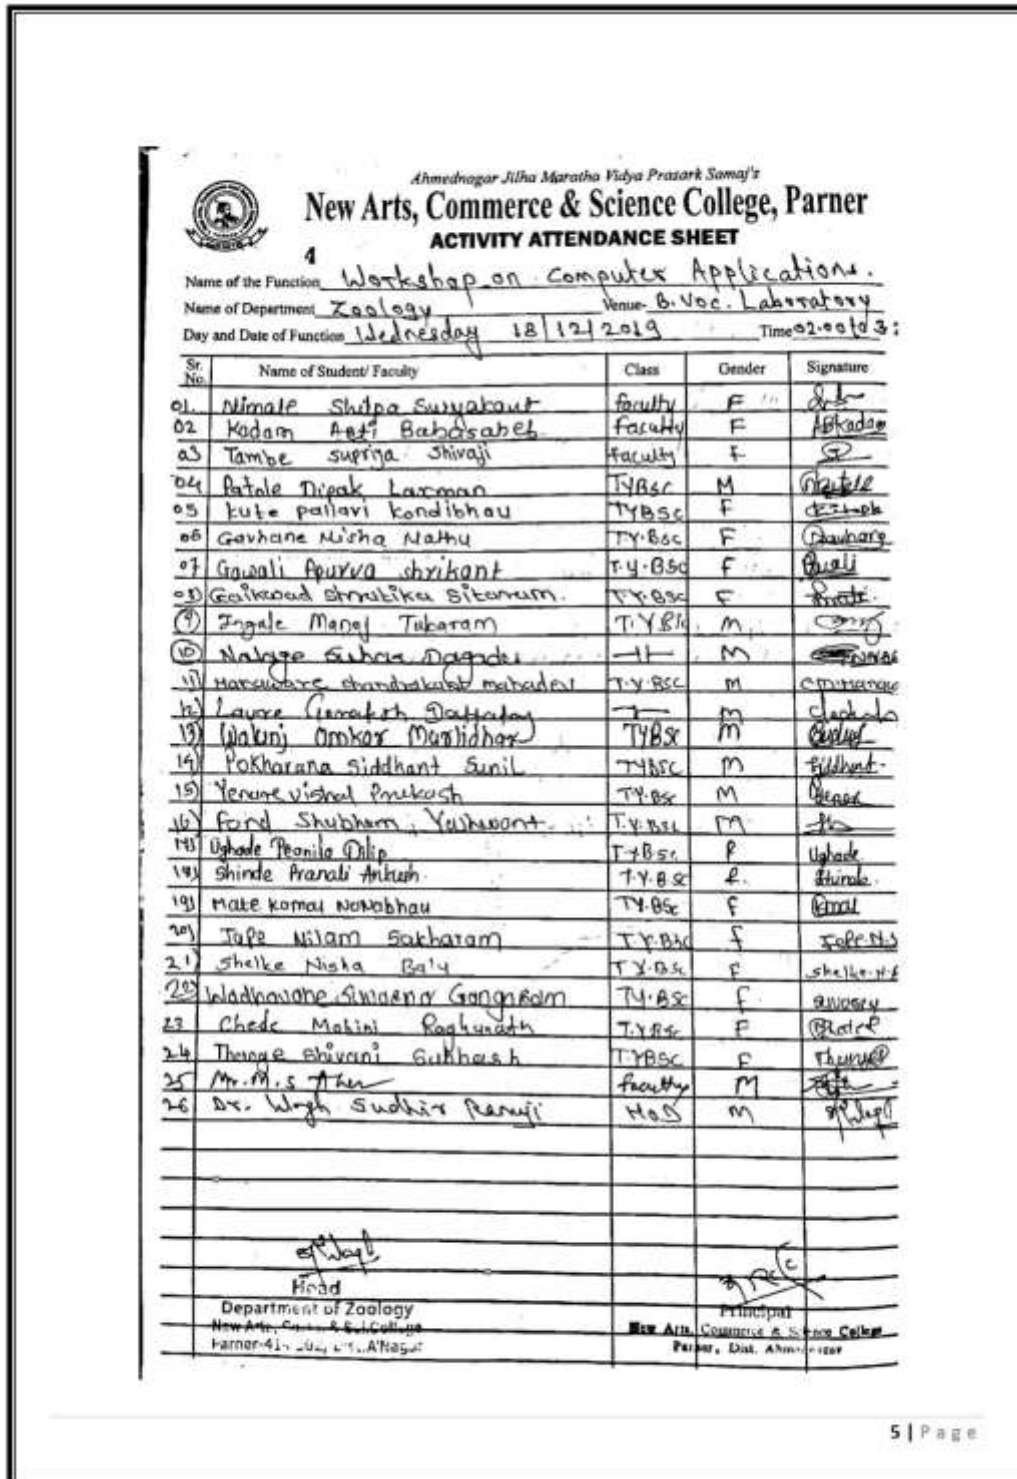 Ahmednagar Jilha Maratha Vidya Prasark Samaj's
New Arts, Commerce & Science College, Parner
ACTIVITY ATTENDANCE SHEET
Name of the Function Workshop on Computer Applications.
Name of Department Zoology Venue- B.Voc. Laboratory
Day and Date of Function Wednesday 18/12/2019 Time 02.00 to 3:
Sr. No. Name of Student/ Faculty Class Gender Signature
01. Nimale Shilpa Suryakant faculty F
02 Kadam Arti Babasaheb faculty F ABKadam
03 Tambe Supriya Shivaji faculty F
04 Patole Dipak Laxman TYBSC M
05 kute pallavi kondibhau TYBSC F
06 Gavhane Nisha Nathu T.Y.BSC F
07 Gawali Apurva Shrikant T.Y.BSC F
08) Gaikwad Shrutika Sitaram. T.Y.BSC F
9) Ingale Manoj Tukaram T.Y.BSc M
10) Dagadu —11— M
11) chandrakant mahadev T.Y.BSC M
12) Lavare Dattatray M
13) Walunj Omkar Murlidhar TYBSC M
14) Pokharana Siddhant Sunil TYBSC M Siddhant
15) Yenare vishal Prakash TY.BSc M
16) Fand Shubham Yashwant T.Y.BSC M
17) Ughade Dilip T.Y.B.Sc. F Ughade
18) Shinde Pranali Ankush. T.Y.B.Sc F. Shinde.
19) Mate komal NaNabhau TY.BSc F
20) Jape Nilam Sakharam T.Y.BSC f Jape.N.S
21) Shelke Nisha T.Y.B.Sc F shelke.N.B
22) Gangaram TY.BSC F.
23 Chede Mohini Raghunath T.Y.BSc F
24 Thenge Shivani Subhash T.YBSC F
25 Mr. M.S Aher faculty M
26 Dr. Wagh Sudhir Ranuji HOD M
Head
Department of Zoology
New Arts, Comm. & Sci. College
Parner-41
Principal
New Arts, Commerce & Science College
Parner, Dist. Ahmednagar
5 | Page